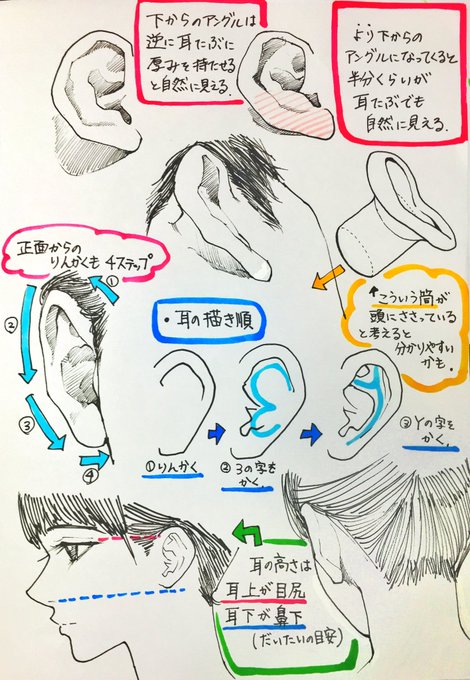 下からのアングルは
逆に耳たぶに
厚みを持たせる
と自然に見える.
より下からの
アングルになってくると
半分くらいが
耳たぶでも
自然に見える.
正面からの
りんかくも4ステップ
①
②
③
④
↑こういう筒が
頭にささっている
と考えると
分かりやすい
かも.
・耳の描き順
①りんかく
②3の字を
かく.
③Yの字を
かく.
耳の高さは
耳上が目尻
耳下が鼻下
(だいたいの目安)